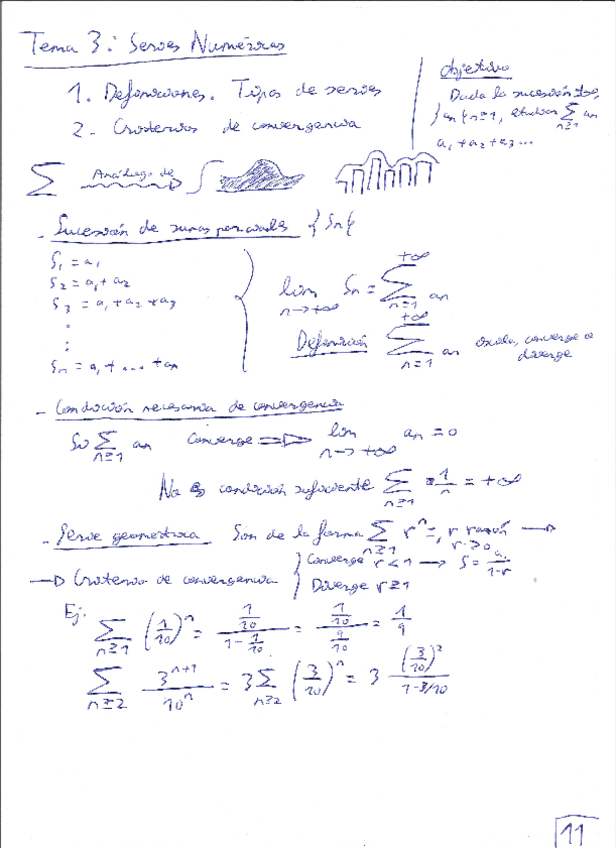 Tema 3: Series Numéricas
1. Definiciones. Tipos de series
2. Criterios de convergencia
Objetivo
Dada la sucesión
{an}n≥1, estudiar ∑n≥1 an
a1 + a2 + a3 ...
∑ Análogo de ∫
- Sucesión de sumas parciales {Sn}
S1 = a1
S2 = a1 + a2
S3 = a1 + a2 + a3
.
:
Sn = a1 + ... + an
lim n→+∞ Sn = ∑n=1+∞ an
Definición ∑n=1+∞ an oscila, converge o
diverge
- Condición necesaria de convergencia
Si ∑n≥1 an converge ⇒ lim n→+∞ an = 0
No es condición suficiente ∑n≥1 1/n = +∞
- Serie geométrica Son de la forma ∑n≥1 r^n =, r razón →
r > 0
→ Criterio de convergencia { Converge r < 1 → S = a1/(1-r)
Diverge r ≥ 1
Ej: ∑n≥1 (1/10)^n = (1/10)/(1 - 1/10) = (1/10)/(9/10) = 1/9
∑n≥2 3^(n+1)/10^n = 3∑n≥2 (3/10)^n = 3 (3/10)^2/(1-3/10)
11